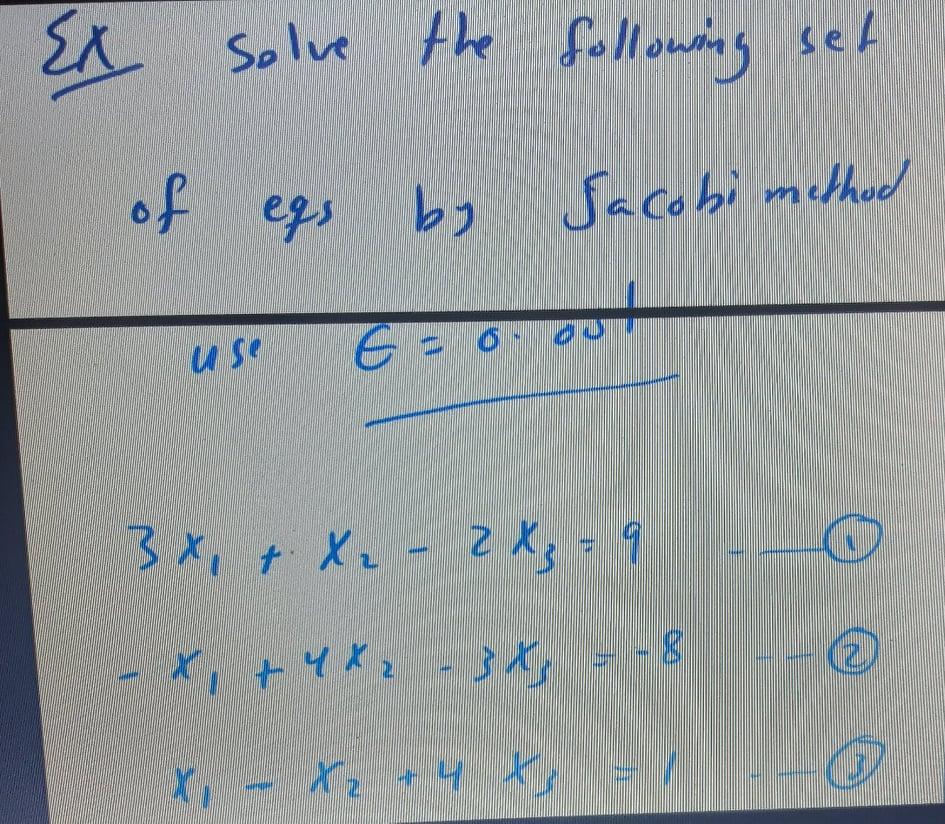 Ex Solve the following set
of eqs by Jacobi method
use ϵ = 0.001
3x₁ + x₂ - 2x₃ = 9 --- ①
- x₁ + 4x₂ - 3x₃ = -8 --- ②
x₁ - x₂ + 4x₃ = 1 --- ③